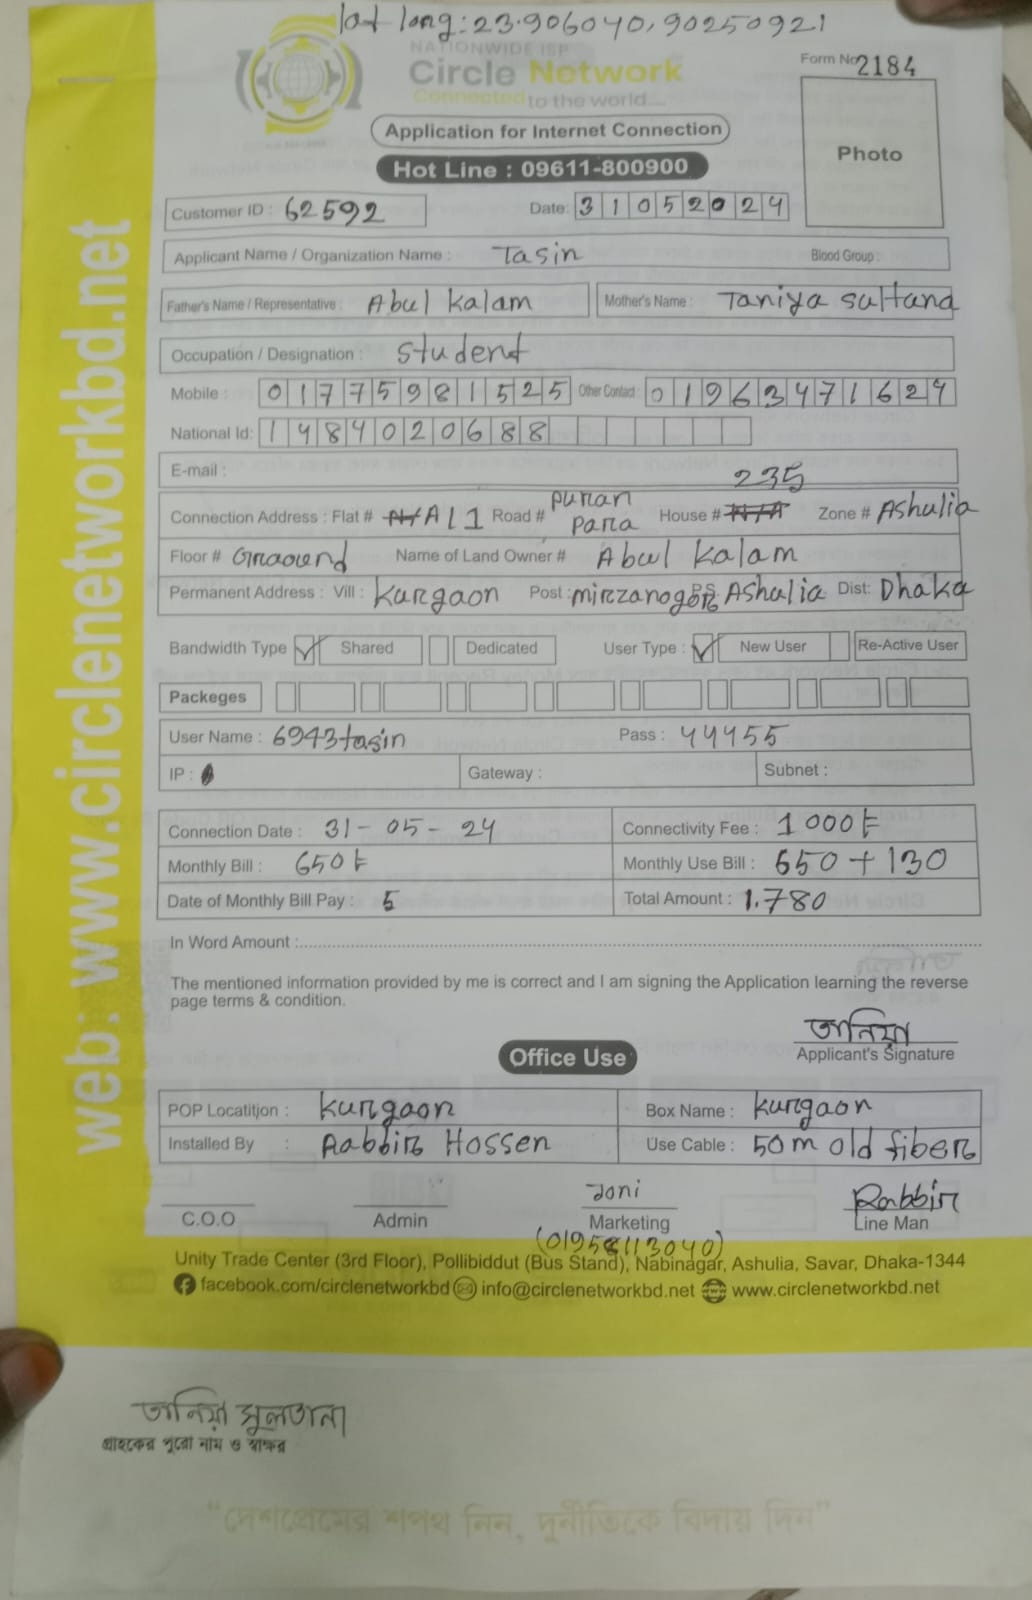 lat long: 23.906040, 90250921
NATIONWIDE ISP
Circle Network
Connected to the world....
Form No 2184
Application for Internet Connection
Photo
Hot Line : 09611-800900
Customer ID : 62592 Date: 31052024
Applicant Name / Organization Name : Tasin Blood Group :
Father's Name / Representative : Abul Kalam Mother's Name : Taniya Sultana
Occupation / Designation : Student
Mobile : 01775981525 Other Contact : 01963471624
National Id: 1484020688
E-mail :
235
Connection Address : Flat # A/1 Road # puran para House # Zone # Ashulia
Floor # Graound Name of Land Owner # Abul Kalam
Permanent Address : Vill : Kurgaon Post : mirzanogor P.S Ashulia Dist: Dhaka
Bandwidth Type Shared Dedicated User Type : New User Re-Active User
Packeges
User Name : 6943tasin Pass : 44455
IP : Gateway : Subnet :
Connection Date : 31-05-24 Connectivity Fee : 1000৳
Monthly Bill : 650৳ Monthly Use Bill : 650+130
Date of Monthly Bill Pay : 5 Total Amount : 1.780
In Word Amount :
The mentioned information provided by me is correct and I am signing the Application learning the reverse
page terms & condition.
তানিয়া
Applicant's Signature
Office Use
POP Locatitjon : Kurgaon Box Name : Kurgaon
Installed By : Rabbir Hossen Use Cable : 50m old fiber
Joni Rabbir
C.O.O Admin Marketing Line Man
(01958113040)
Unity Trade Center (3rd Floor), Pollibiddut (Bus Stand), Nabinagar, Ashulia, Savar, Dhaka-1344
facebook.com/circlenetworkbd info@circlenetworkbd.net www.circlenetworkbd.net
web: www.circlenetworkbd.net
তানিয়া সুলতানা
গ্রাহকের পুরো নাম ও স্বাক্ষর
“দেশপ্রেমের শপথ নিন, দুর্নীতিকে বিদায় দিন”